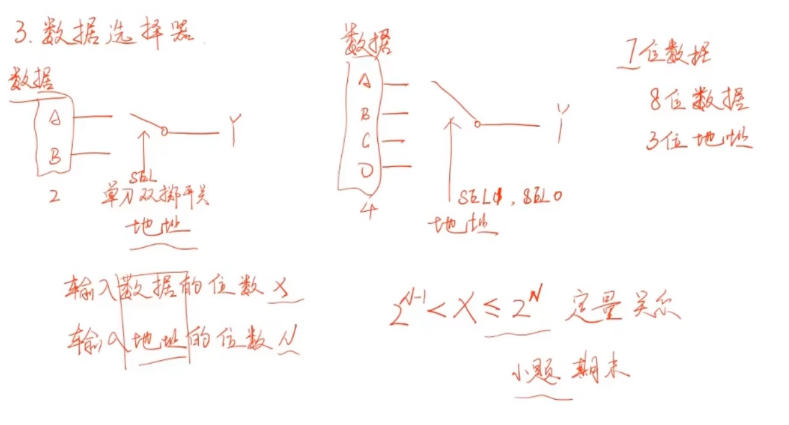 3. 数据选择器
数据
A
B
2
SEL
单刀双掷开关
地址
Y
数据
A
B
C
D
4
SEL1, SEL0
地址
Y
7位数据
8位数据
3位地址
输入数据的位数 X
输入地址的位数 N
2^{N-1} < X ≤ 2^N 定量关系
小题 期末